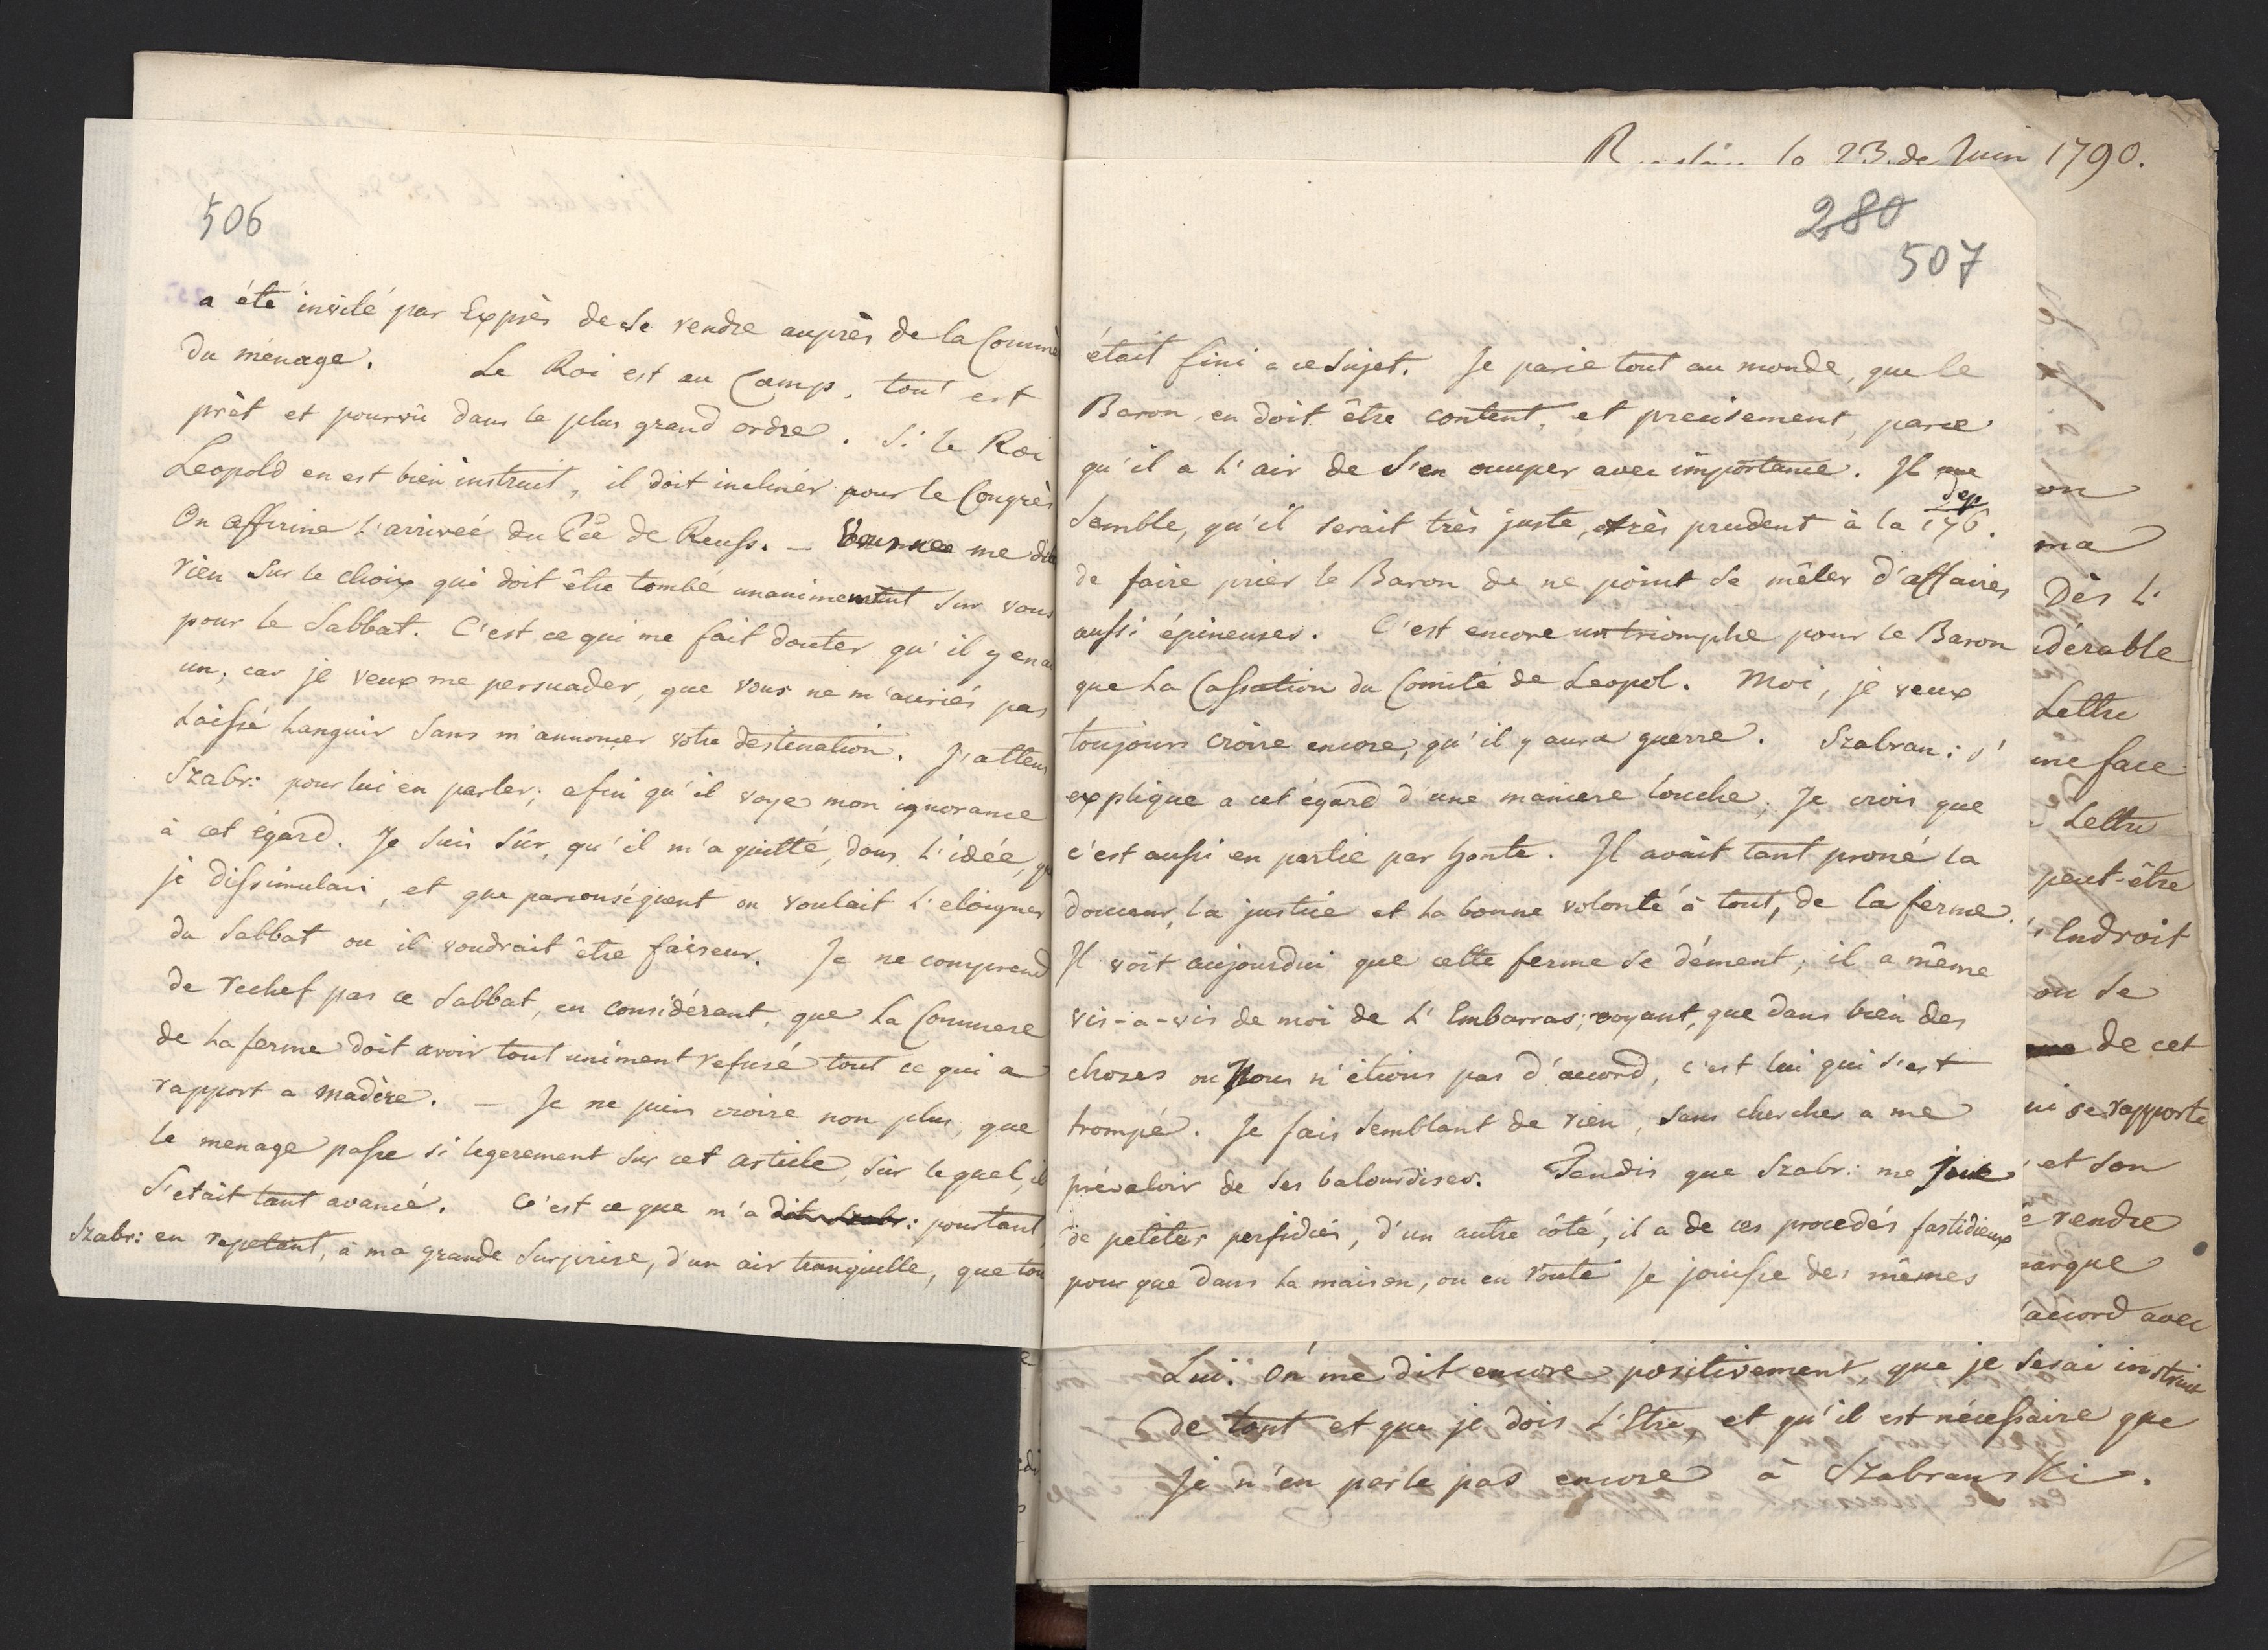 506
a été invité par Exprès de se rendre auprès de la Commere
du ménage. Le Roi est au Camp, tout est
prêt et pourvû dans le plus grand ordre. Si le Roi
Leopold en est bien instruit, il doit incliner pour le Congrès
On affirme l'arriveé du Pce de Reuss. — Vous ne me dites
rien sur le choix qui doit être tombé unanimement sur vous
pour le Sabbat. C'est ce qui me fait douter qu'il y en a
un, car je veux me persuader, que vous ne m'auriés pas
laissé languir sans m'annonçer votre destination. J'attens
Szabr: pour lui en parler; afin qu'il voye mon ignorance
à cet égard. Je suis sûr, qu'il m'a quitté, dans l'idée, que
je dissimulais, et que parconséquent on voulait l'eloigner
du Sabbat ou il voudrait être faiseur. Je ne comprend
de rechef pas ce Sabbat, en considérant, que la Commere
de la ferme doit avoir tout uniment refusé tout ce qui a
rapport a madère. — Je ne puis croire non plus, que
le menage passe si legerement sur cet article, sur lequel, il
s'etait tant avancé. C'est ce que m'a dit Szabr: pourtant,
Szabr: en repetant, à ma grande surprise, d'un air tranquille, que tout
R le 23. de Juin 1790.
280
507
était fini a ce sujet. Je parie tout au monde, que le
Baron en doit être content, et precisement, parce
qu'il a l'air de s'en occuper avec importance. Il me
semble, qu'il serait très juste, très prudent à la 176.
dep
de faire prier le Baron de ne point se mêler d'affaires
aussi épineuses. C'est encore un triomphe pour le Baron
que la Cassation du Comité de Leopol. Moi, je veux
toujours croire encore, qu'il y aura guerre. Szabran: s'
explique a cet égard d'une maniere louche; Je crois que
c'est aussi en partie par honte. Il avait tant proné la
douceur, la justice et la bonne volonté à tout, de la ferme.
Il voit aujourdui que cette ferme se dément; il a même
vis-a-vis de moi de l'Embarras; voyant, que dans bien des
choses ou Nous n'étions pas d'accord, c'est lui qui s'est
trompé. Je fais semblant de rien, sans chercher a me
prévaloir de ses balourdises. Tandis que Szabr: me joue
de petites perfidies, d'un autre côté, il a de ces procedés fastidieux
pour que dans la maison, ou en route je jouisse des mêmes
on
ma
Dès l'
idérable
Lettre
me face
Lettre
peut-être
l'Endroit
ou se
de cet
ui se rapporte
et son
e rendre
marque
accord avec
Lui. On me dit encore positivement, que je serai instruit
de tout et que je dois l'Etre, et qu'il est nécessaire que
je n'en parle pas encore à Szabranski.